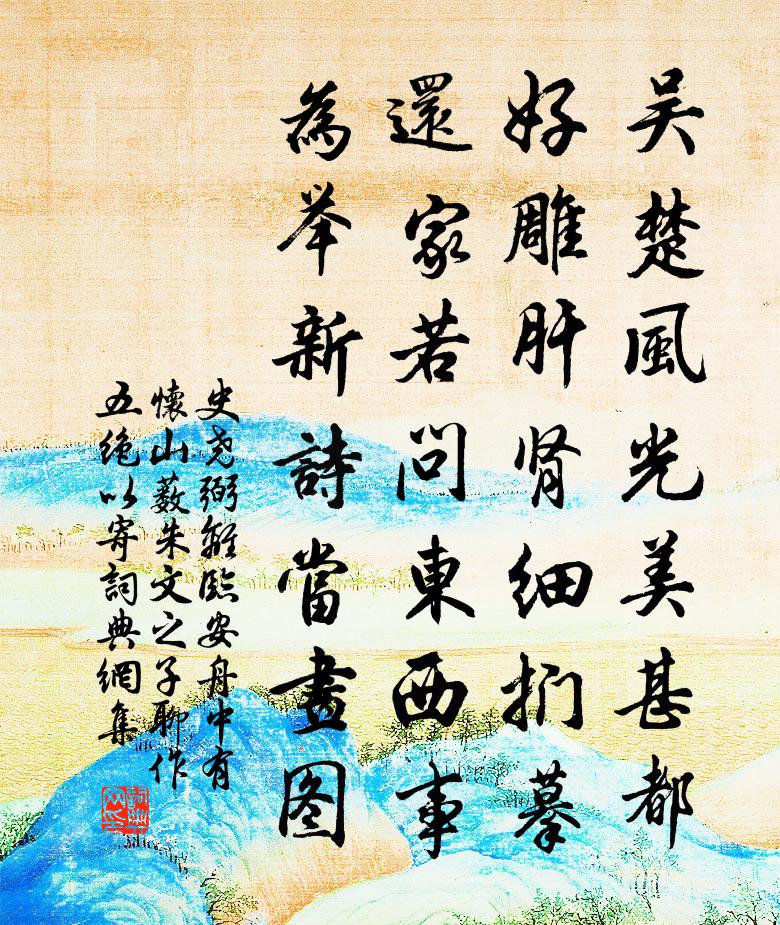 吴楚風光美甚都
好雕肝肾细捫摹
還家若問東西事
為举新詩當畫图
史堯弼離臨安舟中有
懷山薮朱文之子聊作
五绝以寄詞典網集